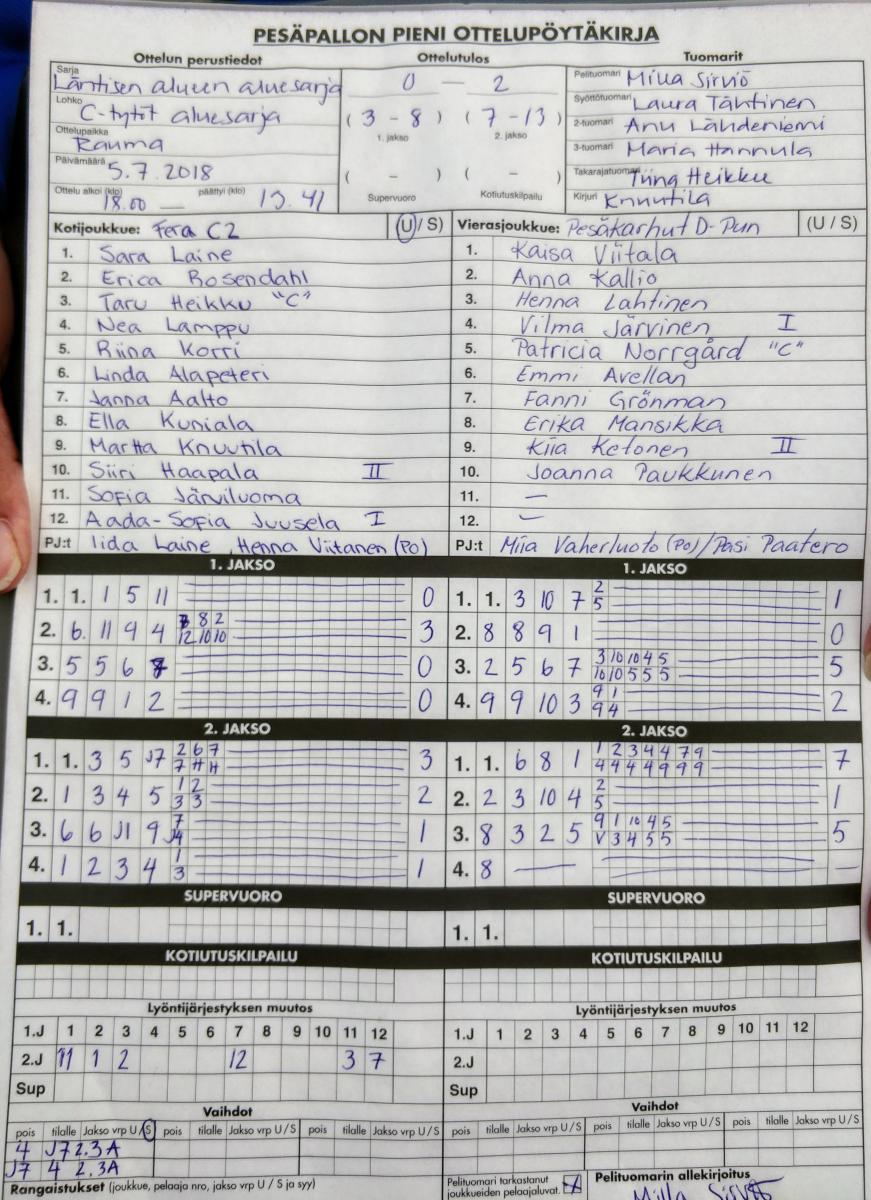 PESÄPALLON PIENI OTTELUPÖYTÄKIRJA
Ottelun perustiedot Ottelutulos Tuomarit
Sarja Läntisen alueen aluesarja 0 — 2 Pelituomari Milla Sirviö
Lohko C-tytöt aluesarja (3 - 8) (7 - 13) Syöttötuomari Laura Tähtinen
1. jakso 2. jakso 2-tuomari Anu Lähdeniemi
Ottelupaikka Rauma 3-tuomari Maria Hannula
Päivämäärä 5.7.2018 ( - ) ( - ) Takarajatuomari Heikku
Ottelu alkoi (klo) 18.00 — päättyi (klo) 19.41 Supervuoro Kotiutuskilpailu Kirjuri Knuutila
Kotijoukkue: Fera C2 (U/S) Vierasjoukkue: Pesäkarhut D-Pun (U/S)
1. Sara Laine 1. Kaisa Viitala
2. Erica Rosendahl 2. Anna Kallio
3. Taru Heikku "C" 3. Henna Lahtinen
4. Nea Lamppu 4. Vilma Järvinen I
5. Riina Korri 5. Patricia Norrgård "C"
6. Linda Alapeteri 6. Emmi Avellan
7. Janna Aalto 7. Fanni Grönman
8. Ella Kuniala 8. Erika Mansikka
9. Martta Knuutila 9. Kiia Ketonen II
10. Siiri Haapala II 10. Joanna Paukkunen
11. Sofia Järviluoma 11. —
12. Aada-Sofia Juusela I 12. —
PJ:t Iida Laine, Henna Viitanen (PO) PJ:t Miia Vaherluoto (PO) / Pasi Paatero
1. JAKSO 1. JAKSO
1. 1. 1 5 11 0 1. 1. 3 10 7 2 5 1
2. 6. 11 9 4 8 2 12 10 10 3 2. 8 8 9 1 0
3. 5 5 6 7 0 3. 2 5 6 7 3 10 10 4 5 10 10 5 5 5 5
4. 9 9 1 2 0 4. 9 9 10 3 9 1 9 4 2
2. JAKSO 2. JAKSO
1. 1. 3 5 J7 2 6 7 7 H H 3 1. 1. 6 8 1 1 2 3 4 4 7 9 4 4 4 4 9 9 9 7
2. 1 3 4 5 1 2 3 3 2 2. 2 3 10 4 2 5 1
3. 6 6 J1 9 7 J4 1 3. 8 3 2 5 9 1 10 4 5 V 3 4 5 5 5
4. 1 2 3 4 1 3 1 4. 8 — —
SUPERVUORO SUPERVUORO
1. 1. 1. 1.
KOTIUTUSKILPAILU KOTIUTUSKILPAILU
Lyöntijärjestyksen muutos Lyöntijärjestyksen muutos
1.J 1 2 3 4 5 6 7 8 9 10 11 12 1.J 1 2 3 4 5 6 7 8 9 10 11 12
2.J 11 1 2 12 3 7 2.J
Sup Sup
Vaihdot Vaihdot
pois tilalle Jakso vrp U/S pois tilalle Jakso vrp U/S pois tilalle Jakso vrp U/S pois tilalle Jakso vrp U/S pois tilalle Jakso vrp U/S pois tilalle Jakso vrp U/S
4 J7 2.3A
J7 4 2.3A
Rangaistukset (joukkue, pelaaja nro, jakso vrp U / S ja syy) Pelituomari tarkastanut joukkueiden pelaajaluvat. Pelituomarin allekirjoitus